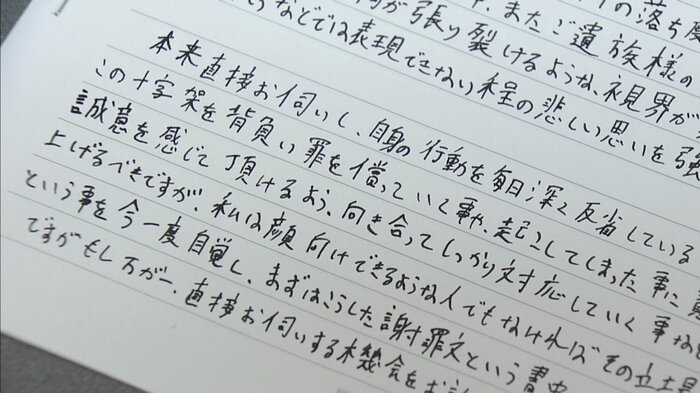 の落ち度
またご遺族様の
が張り裂けるような、視界が
などでは表現できない程の悲しい思いを強
本来直接お伺いし、自身の行動を毎日深く反省している
この十字架を背負い罪を償っていく事や、起こしてしまった事に
誠意を感じて頂けるよう、向き合ってしっかり対応していく事な
上げるべきですが、私は顔向けできるような人でもなければその立場
という事を今一度自覚し、まずはこうした謝罪文という書
ですがもし万が一、直接お伺いする機会を